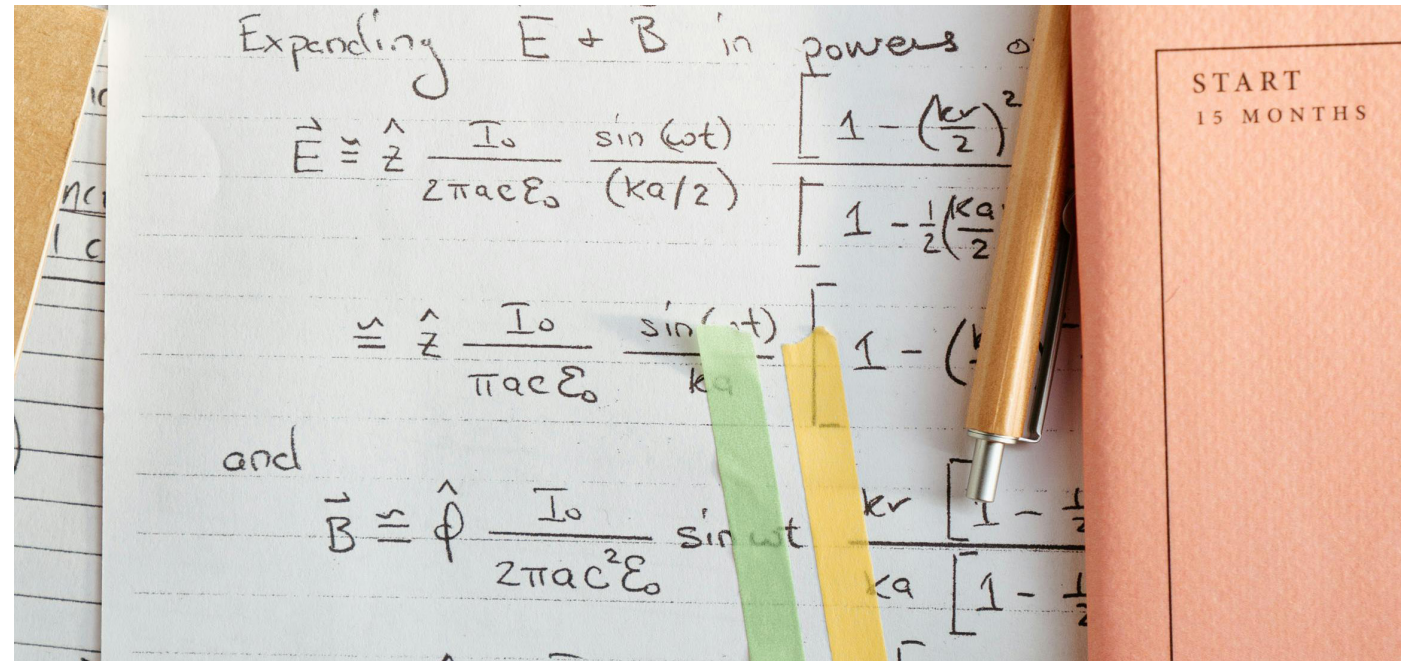 Expanding E⃗ + B⃗ in powers
E⃗ ≅ ẑ I₀/(2πacε₀) sin(ωt)/(ka/2) [1 - (kr/2)²
[1 - ½(ka/2
≅ ẑ I₀/(πacε₀) sin(ωt)/ka [1 - (
and
B⃗ ≅ φ̂ I₀/(2πac²ε₀) sin ωt kr [1 - ½
ka [1 - ½
START
15 MONTHS